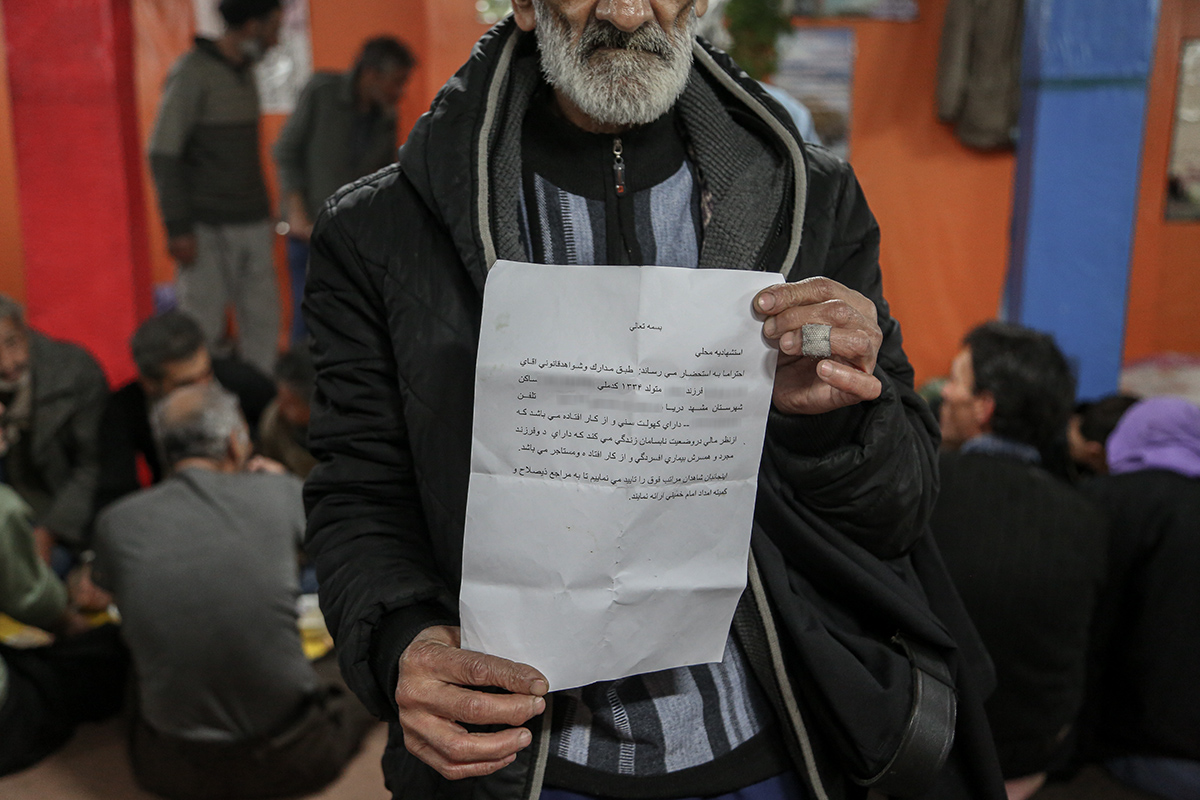 بسمه تعالي
استشهاديه محلي
احتراما به استحضار مي رساند: طبق مدارك وشواهدقانوني اقاي
فرزند متولد ۱۳۳۴ كدملي ساكن
شهرستان مشهد تلفن
داراي كهولت سني و از كار افتاده مي باشد كه
ازنظر مالي دروضعيت نابسامان زندگي مي كند كه داراي دوفرزند
مجرد و همسرش بيماري افسردگي و از كار افتاده ومستاجر مي باشد.
اينجانبان شاهدان مراتب فوق را تاييد مي نماييم تا به مراجع ذيصلاح و
كميته امداد امام خميني ارائه نمايند.